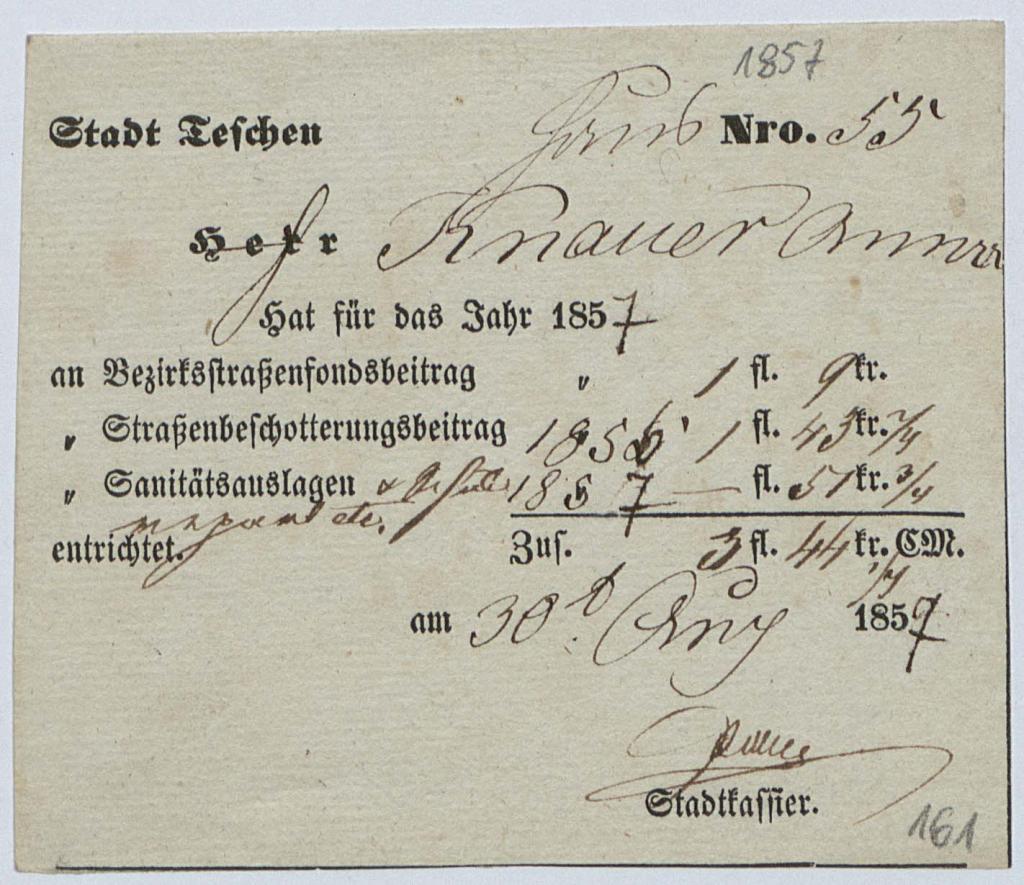 1857
Stadt Teschen Haus Nro. 55
Herr Knauer Anna
Hat für das Jahr 1857
an Bezirksstraßenfondsbeitrag „ 1 fl. 9 kr.
„ Straßenbeschotterungsbeitrag 1856 1 fl. 43 kr. 2/4
„ Sanitätsauslagen 1857 — fl. 51 kr. 3/4
entrichtet. Zus. 3 fl. 44 kr. CM.
1/4
am 30t Aug 1857
Stadtkassier.
161